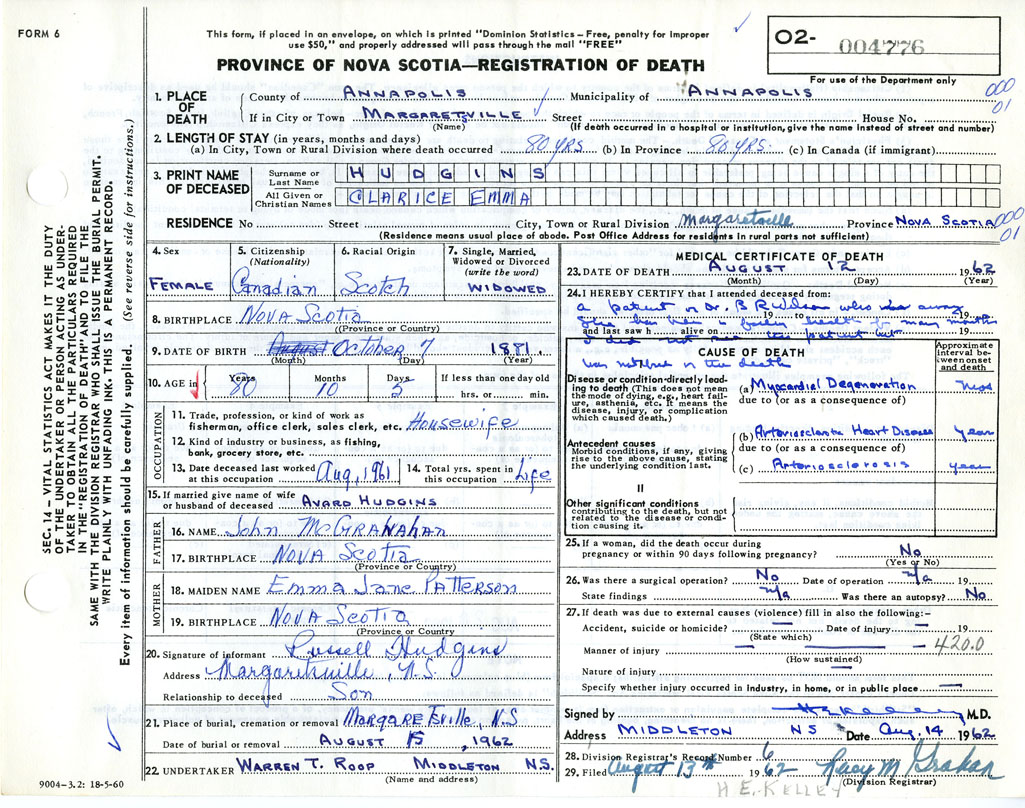 FORM 6
This form, if placed in an envelope, on which is printed "Dominion Statistics – Free, penalty for improper
use $50," and properly addressed will pass through the mail "FREE"
PROVINCE OF NOVA SCOTIA—REGISTRATION OF DEATH
02- 004776
For use of the Department only
000
01
SEC. 14 – VITAL STATISTICS ACT MAKES IT THE DUTY
OF THE UNDERTAKER OR PERSON ACTING AS UNDER-
TAKER TO OBTAIN ALL THE PARTICULARS REQUIRED
IN THE "REGISTRATION OF DEATH" AND TO FILE THE
SAME WITH THE DIVISION REGISTRAR WHO SHALL ISSUE THE BURIAL PERMIT.
WRITE PLAINLY WITH UNFADING INK. THIS IS A PERMANENT RECORD.
Every item of information should be carefully supplied. (See reverse side for instructions.)
1. PLACE OF DEATH
County of ANNAPOLIS Municipality of ANNAPOLIS
If in City or Town MARGARETSVILLE Street House No.
(Name) (If death occurred in a hospital or institution, give the name instead of street and number)
2. LENGTH OF STAY (in years, months and days)
(a) In City, Town or Rural Division where death occurred 80 YRS (b) In Province 80 YRS. (c) In Canada (if immigrant)
3. PRINT NAME OF DECEASED
Surname or Last Name HUDGINS
All Given or Christian Names CLARICE EMMA
RESIDENCE No Street City, Town or Rural Division Margaretsville Province NOVA SCOTIA 000
01
(Residence means usual place of abode. Post Office Address for residents in rural parts not sufficient)
4. Sex FEMALE
5. Citizenship (Nationality) Canadian
6. Racial Origin Scotch
7. Single, Married, Widowed or Divorced (write the word) WIDOWED
8. BIRTHPLACE NOVA SCOTIA
(Province or Country)
9. DATE OF BIRTH August OCTOBER 7 1881.
(Month) (Day) (Year)
10. AGE in Years 80 Months 10 Days 5 If less than one day old
hrs. or min.
OCCUPATION
11. Trade, profession, or kind of work as
fisherman, office clerk, sales clerk, etc. Housewife
12. Kind of industry or business, as fishing,
bank, grocery store, etc.
13. Date deceased last worked at this occupation Aug, 1961
14. Total yrs. spent in this occupation Life
15. If married give name of wife
or husband of deceased AVARD HUDGINS
FATHER
16. NAME John McGRANAHAN
17. BIRTHPLACE NOVA SCOTIA
(Province or Country)
MOTHER
18. MAIDEN NAME EMMA JANE PATTERSON
19. BIRTHPLACE NOVA SCOTIA
(Province or Country)
20. Signature of informant Russell Hudgins
Address Margaretsville, N.S.
Relationship to deceased Son
21. Place of burial, cremation or removal MARGARETSville, N.S
Date of burial or removal AUGUST 15, 1962
22. UNDERTAKER WARREN T. ROOP MIDDLETON N.S.
(Name and address)
9004–3.2: 18-5-60
MEDICAL CERTIFICATE OF DEATH
23. DATE OF DEATH AUGUST 12 1962
(Month) (Day) (Year)
24. I HEREBY CERTIFY that I attended deceased from:
a patient of Dr. B who was away
19 to 19
She has been in health for many months
and last saw h alive on 19
I did not see this patient but
CAUSE OF DEATH
was notified of the death
Approximate interval between onset and death
Disease or condition directly lead-
ing to death (This does not mean
the mode of dying, e.g., heart fail-
ure, asthenia, etc. It means the
disease, injury, or complication
which caused death.)
(a) Myocardial Degeneration mos
due to (or as a consequence of)
Antecedent causes
Morbid conditions, if any, giving
rise to the above cause, stating
the underlying condition last.
(b) Arteriosclerotic Heart Disease year
due to (or as a consequence of)
(c) Arteriosclerosis year
II
Other significant conditions
contributing to the death, but not
related to the disease or condi-
tion causing it.
25. If a woman, did the death occur during
pregnancy or within 90 days following pregnancy? No
(Yes or No)
26. Was there a surgical operation? No Date of operation n/a 19
State findings n/a Was there an autopsy? No
27. If death was due to external causes (violence) fill in also the following:–
Accident, suicide or homicide? Date of injury 19
(State which)
Manner of injury 420.0
(How sustained)
Nature of injury
Specify whether injury occurred in industry, in home, or in public place
Signed by H E Kelley M.D.
Address MIDDLETON NS Date Aug. 14 1962
28. Division Registrar's Record Number 6
29. Filed August 13th 1962 Lucy M Graham
(Division Registrar)
H E. KELLEY